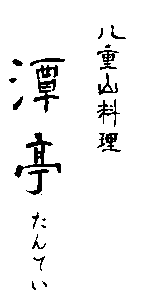 八重山料理
潭亭
たんてい